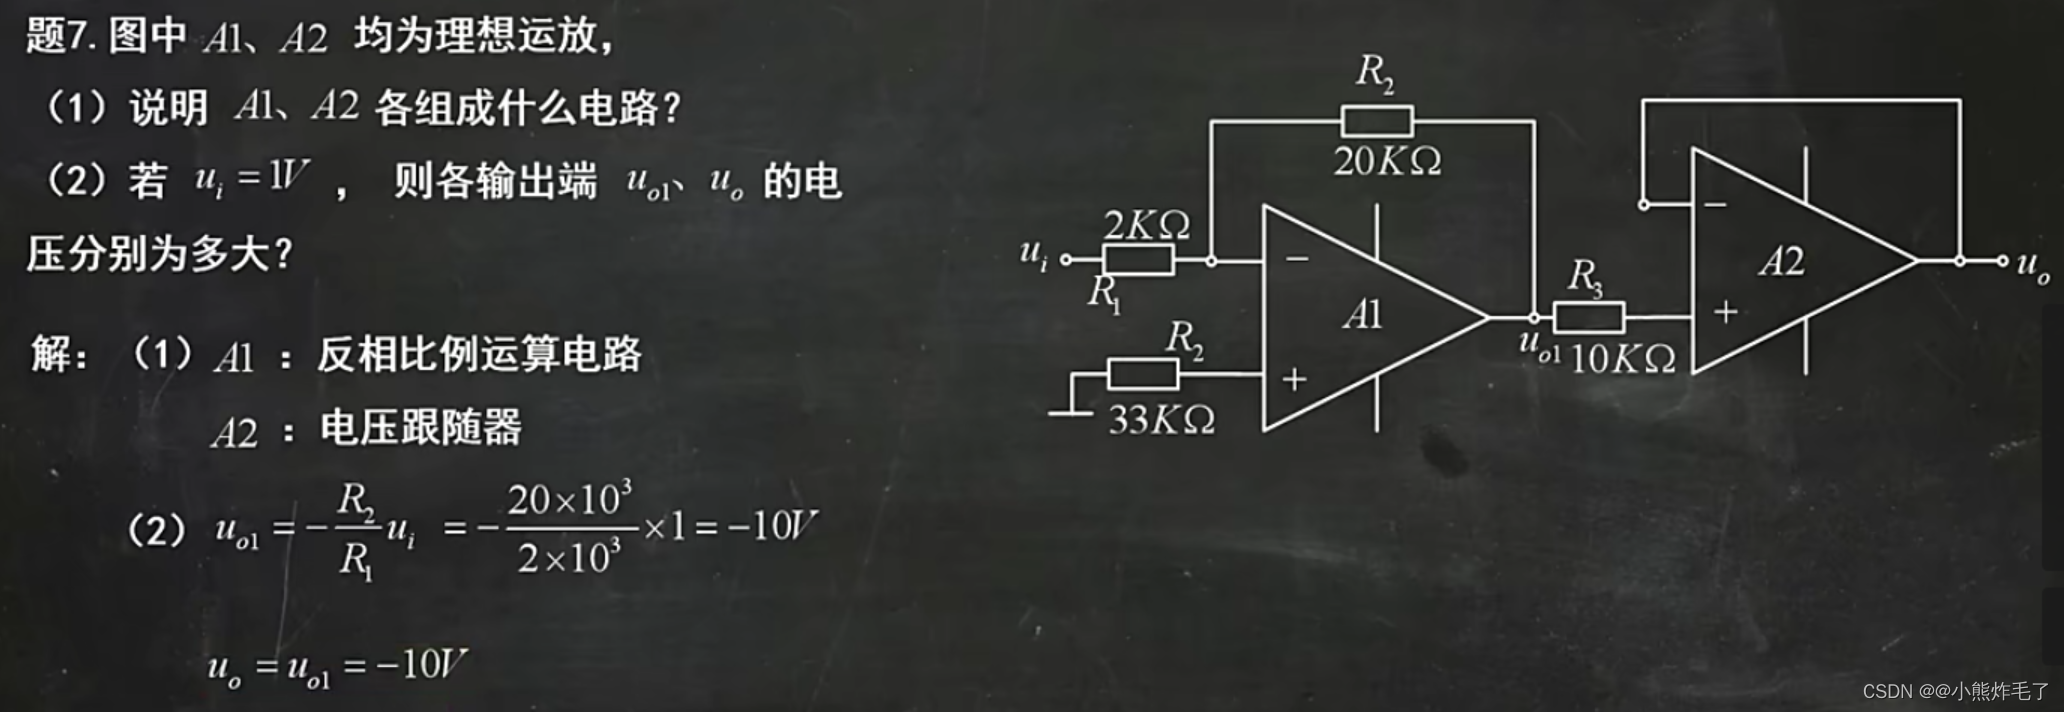 题7. 图中 A1、A2 均为理想运放，
（1）说明 A1、A2 各组成什么电路？
（2）若 uᵢ = 1V ， 则各输出端 uₒ₁、uₒ 的电
压分别为多大？
解：（1）A1 ：反相比例运算电路
A2 ：电压跟随器
（2）uₒ₁ = -R₂/R₁ uᵢ = -20×10³/2×10³ ×1 = -10V
uₒ = uₒ₁ = -10V
R₂
20KΩ
2KΩ
uᵢ
R₁
−
A1
R₂
+
33KΩ
uₒ₁
R₃
10KΩ
−
A2
+
uₒ
CSDN @@小熊炸毛了